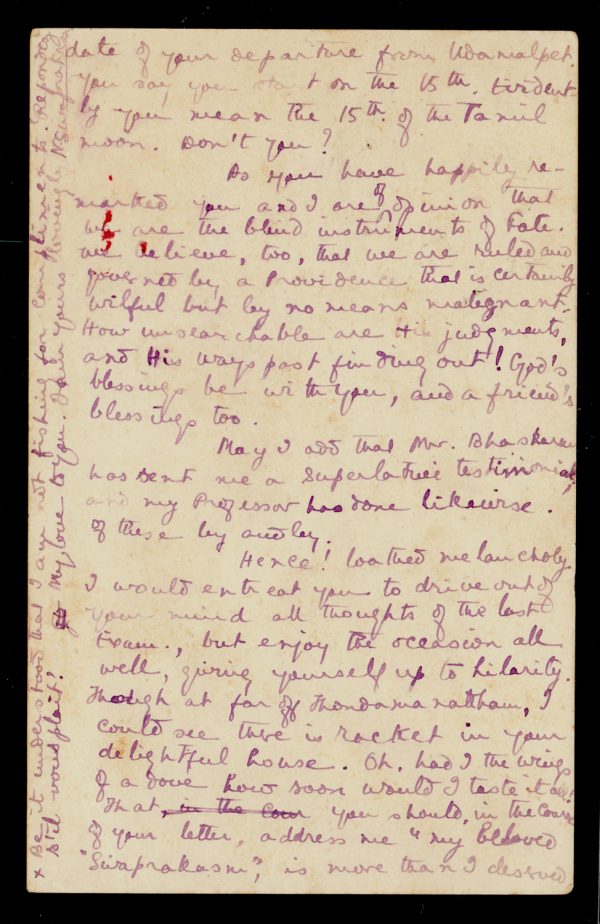 date of your departure from Udamalpet.
you say you start on the 15th. Evident-
ly you mean the 15th of the Tamil
moon. Don't you?
As you have happily re-
marked you and I are of opinion that
we are the blind instruments of Fate.
we believe, too, that we are ruled and
governed by a Providence that is certainly
wilful but by no means malignant.
How unsearchable are His judgments,
and His ways past finding out! God's
blessings be with you, and a friend's
blessings too.
May I add that Mr. Bhaskaran
has sent me a Superlative testimonial,
and my Professor has done likewise.
of these by and by.
Hence! loathed melancholy
I would entreat you to drive out of
your mind all thoughts of the last
Exam., but enjoy the occasion all
well, giving yourself up to hilarity.
Though at far off Thondamanattham, I
could see there is racket in your
delightful house. Oh, had I the wings
of a dove how soon would I taste it all!
That, in the cour you should, in the course
of your letter, address me "my beloved
"Sivaprakasm", is more than I deserved
x Be it understood that I am not fishing for compliments. Respondez
s'il vous plait!
My love to you. I am yours N. Sivaprakasam